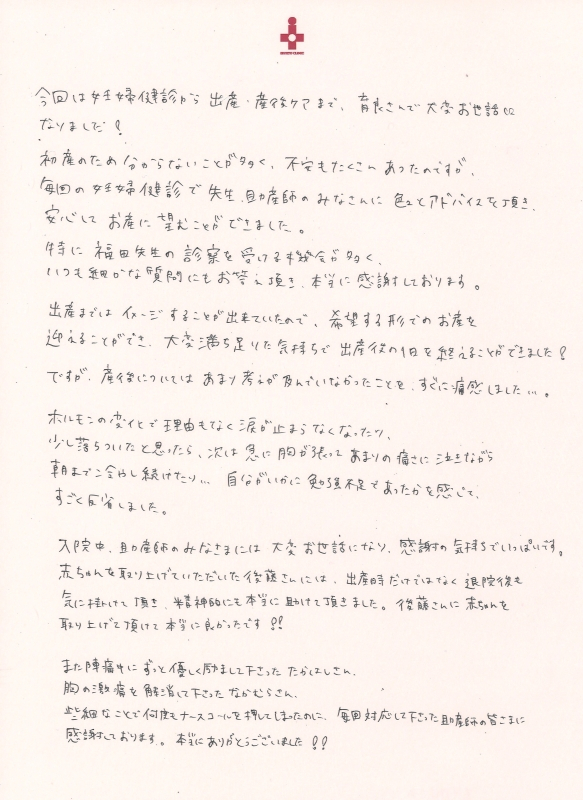 今回は妊婦健診から出産・産後ケアまで、育良さんで大変お世話に
なりました！
初産のため分からないことが多く、不安もたくさんあったのですが、
毎回の妊婦健診で先生、助産師のみなさんに色々とアドバイスを頂き、
安心してお産に望むことができました。
特に福田先生の診察を受ける機会が多く、
いつも細かな質問にもお答え頂き、本当に感謝しております。
出産まではイメージすることが出来ていたので、希望する形でのお産を
迎えることができ、大変満ち足りた気持ちで出産後の1日を終えることができました！
ですが、産後についてはあまり考えが及んでいなかったことを、すぐに痛感しました…。
ホルモンの変化で理由もなく涙が止まらなくなったり、
少し落ちついたと思ったら、次は急に胸が張ってあまりの痛さに泣きながら
朝まで冷やし続けたり… 自分がいかに勉強不足であったかを感じて、
すごく反省しました。
入院中、助産師のみなさまには大変お世話になり、感謝の気持ちでいっぱいです。
赤ちゃんを取り上げていただいた後藤さんには、出産時だけではなく退院後も
気に掛けて頂き、精神的にも本当に助けて頂きました。後藤さんに赤ちゃんを
取り上げて頂けて本当に良かったです!!
また陣痛中にずっと優しく励まして下さったたかはしさん、
胸の激痛を解消して下さったなかむらさん、
些細なことで何度もナースコールを押してしまったのに、毎回対応して下さった助産師の皆さまに
感謝しております。本当にありがとうございました!!